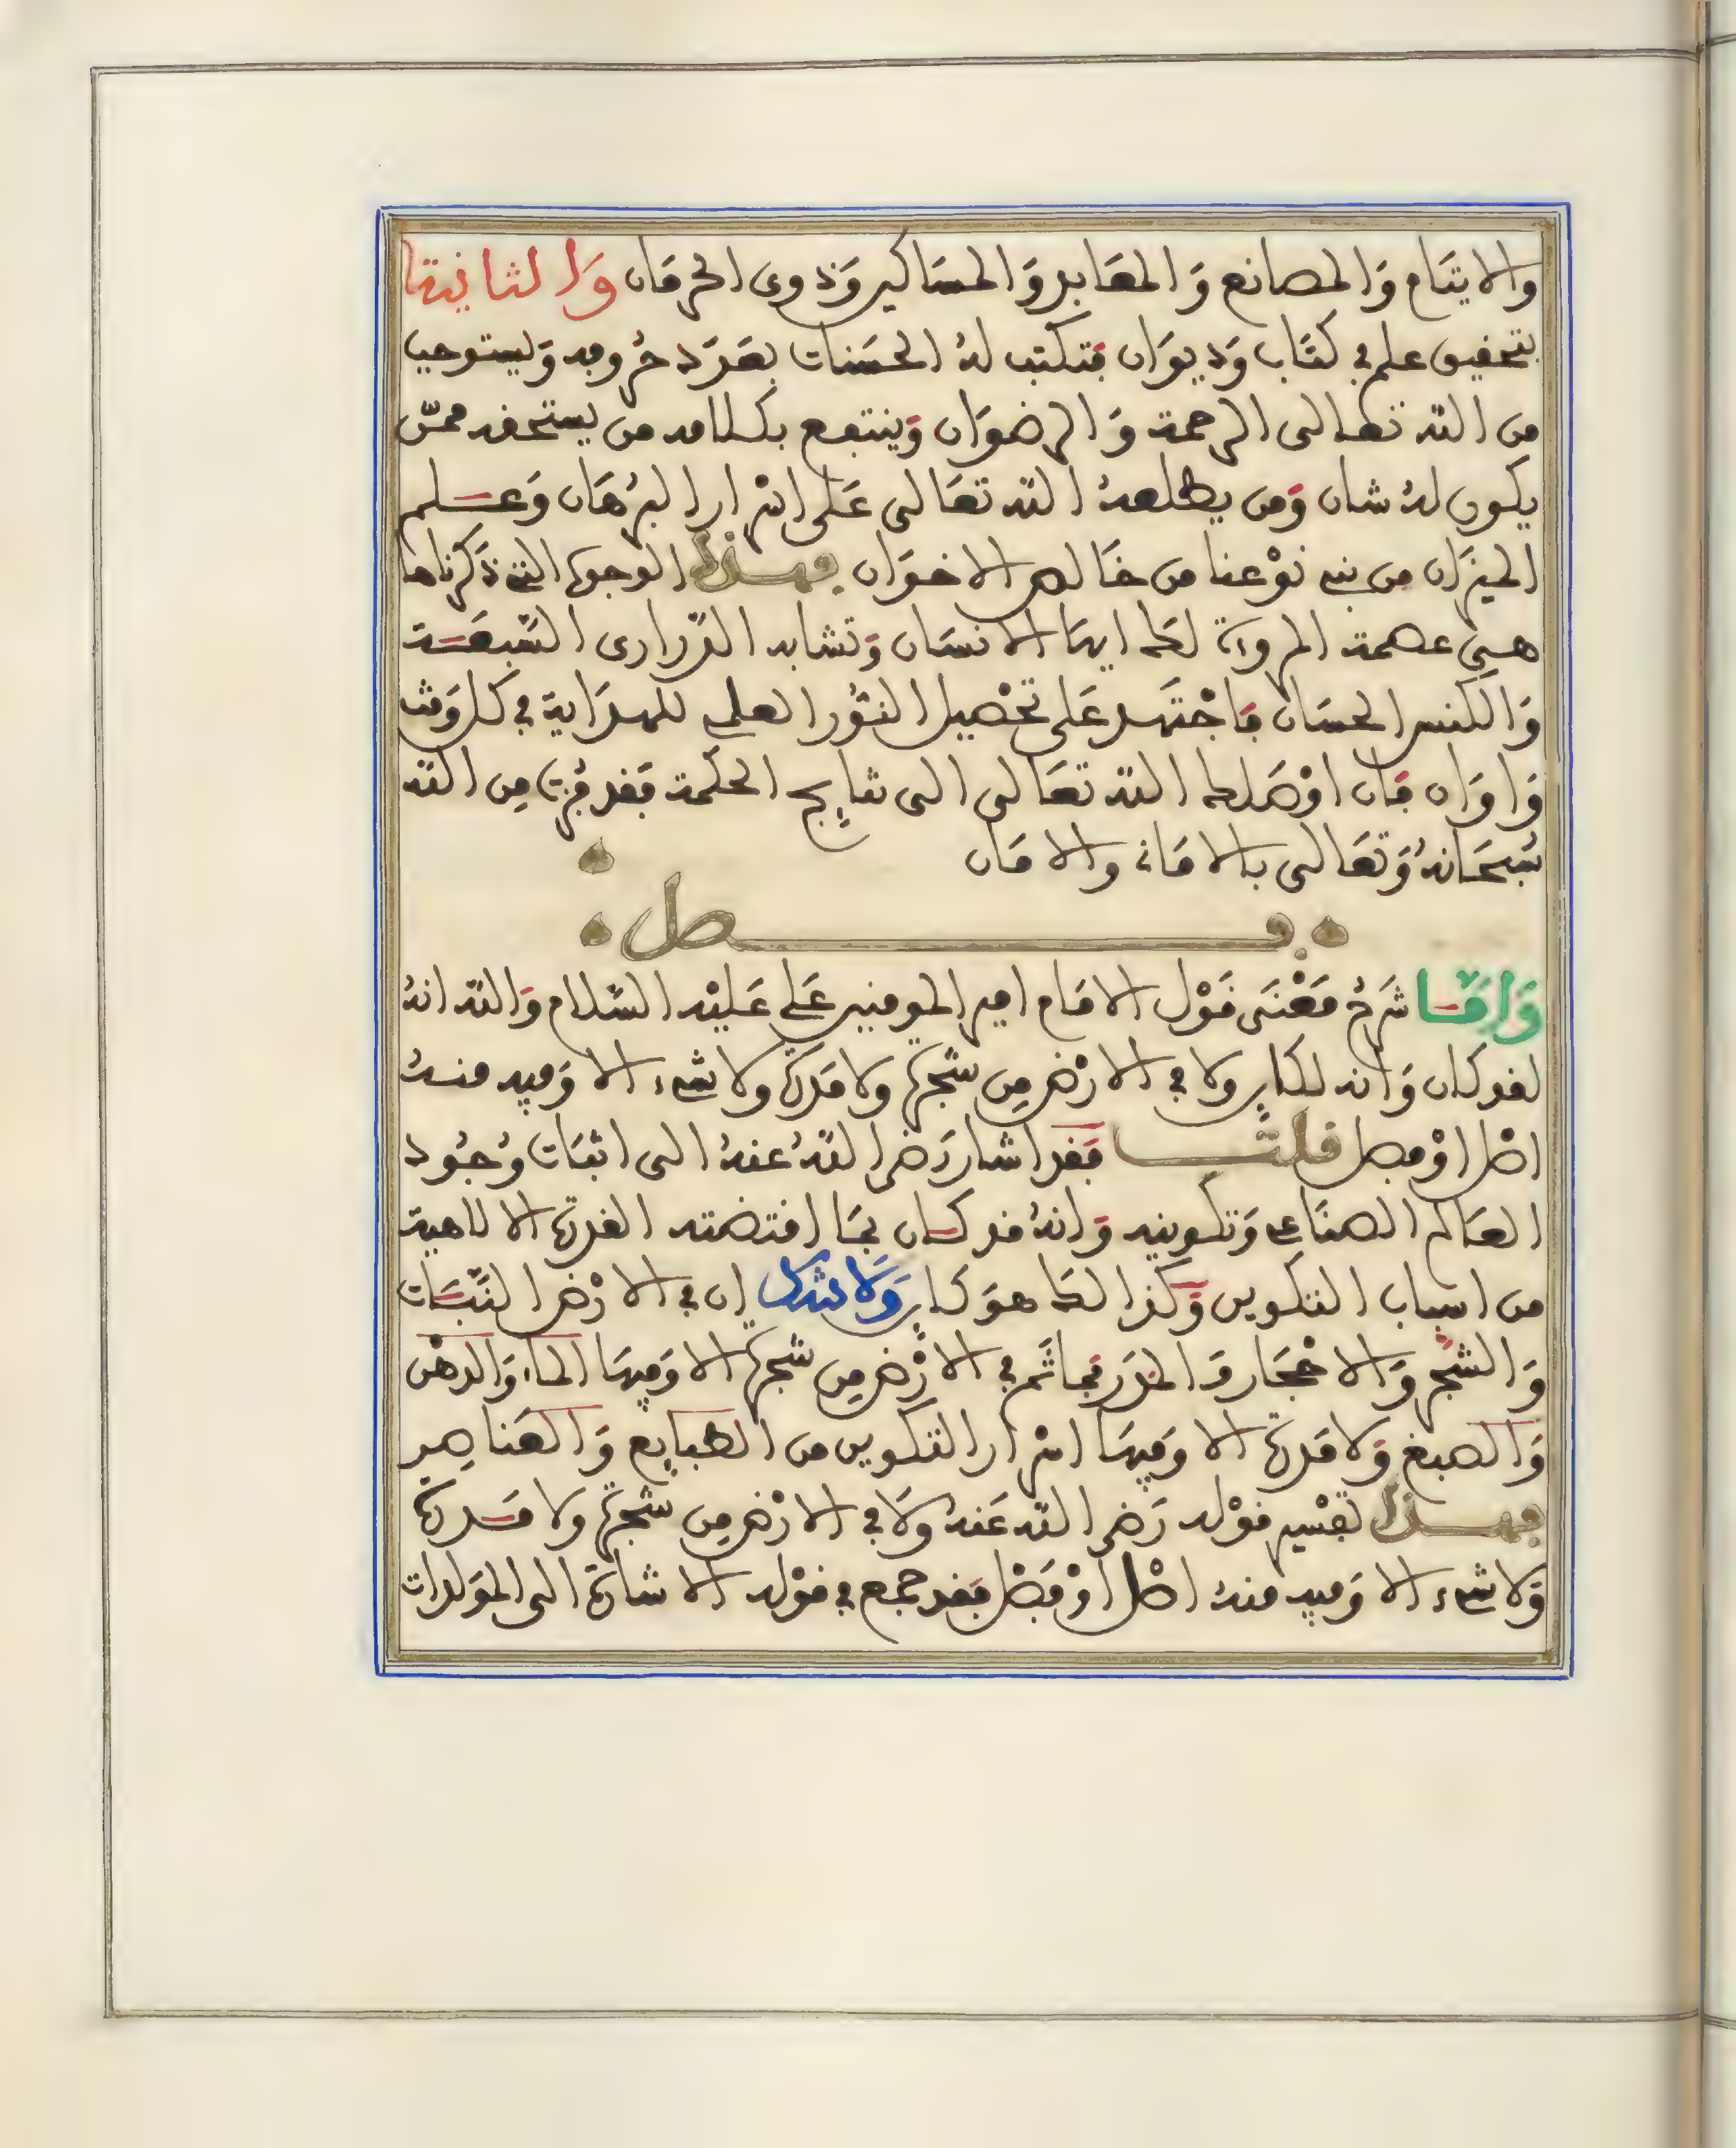 والايتَام وَالمصانع وَالمعَابد وَالمسَاكين وَذوى الحرمَان وَالثانية
بتحقيق علم في كتَاب وَديوَان فتكتب لهُ الحسَنات بعَدَد حرُوفه وَيستوجب
من الله تعالى الرحمة وَالرضوَان وَينتفع بكلامه من يستحقه ممّن
يكون لهُ شان وَمن يطلعهُ الله تعَالى عَلى اسْرار البرْهَان وَعلم
الميزَان من بنى نوْعنا من خَالص الاخوَان فهذه الوجوه التي ذَكرناها
هي عصمة المروة لك ايهَا الانسَان وَتشابه الدّرارى السّبعَة
وَالكنس الحسَان فَاجْتهد عَلى تحْصيل النّوُر العلى للهدَاية في كل وَقت
وَاوَان فَان اوْصَلك الله تعَالى الى نتايج الحكمة فقد فزت مِن الله
سُبحَانهُ وَتعَالى بالامَانة والامَان
فصل
وَامَّا شرْح مَعْنَى قَوْل الامَام امير المومنين عَلى عَليْه السّلام وَالله انهُ
لقد كان وَانه لكاين ولا في الارْض مِن شجرة ولا مَدرة ولا شىء الا وَفيه منهُ
اصْل اوْ فصل قلت فقد اشار رَضى اللهُ عنهُ الى اثبَات وُجُود
العَالم الصنَاعى وَتكوينه وَانهُ قد كان بمَا اقتضته القدرة الالاهية
من اسباب التكوين وَكذالك هوَ كاين وَلا شك ان في الارْض النّبَات
وَالشّجر وَالاحْجَار وَالمَدَر فما ثَم في الارْض مِن شجرة الا وَفيهَا الماء وَالدهْن
وَالصبغ وَلا مَدرة الا وَفيهَا اسْرار التكوين من الطبايع وَالعَناصِر
فهذا تفسْير قوْله رَضى الله عَنهُ وَلا في الارْض مِن شجرة ولا مَدرة
وَلا شىء الا وَفيه منهُ اصْل اوْ فَصْل فَقد جمع في قوْله الاشارة الى المولدات